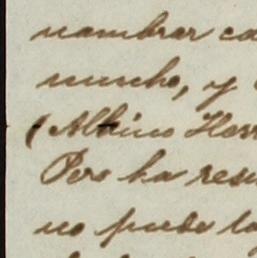 nombrar ca
mucho, y
(Albino Herr
Pero ha resu
no puede to